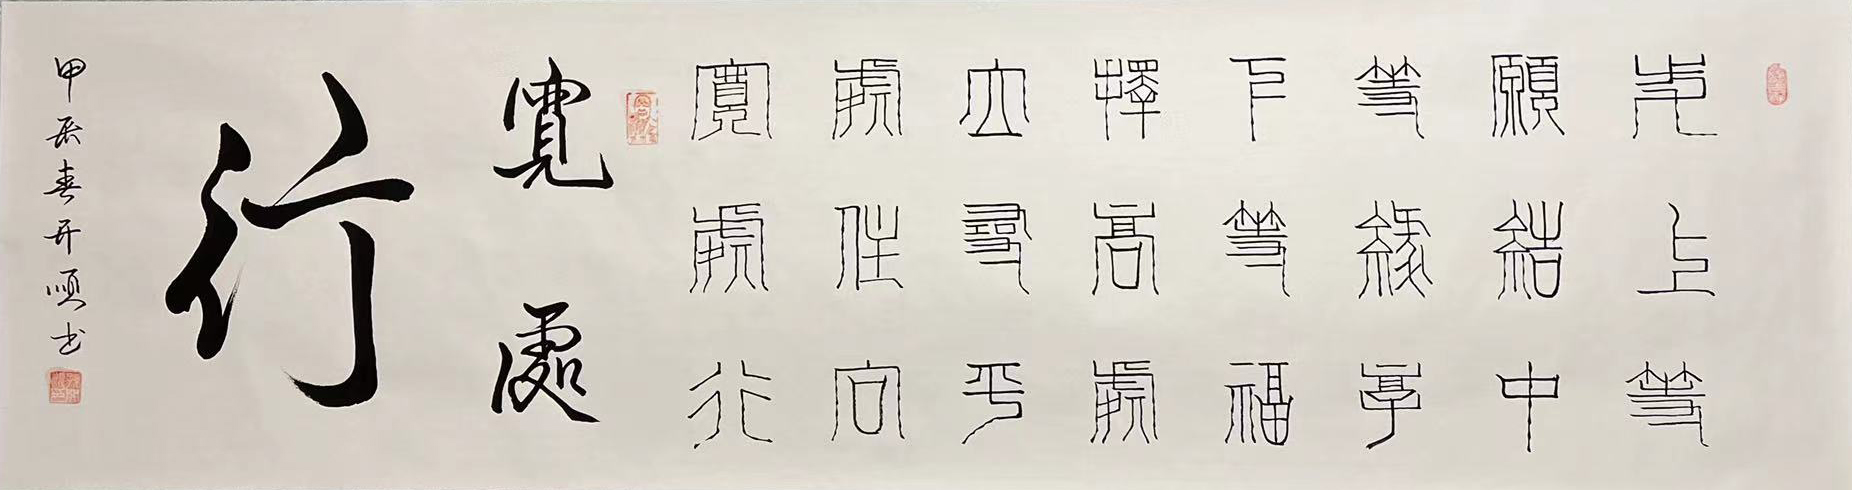 先上等
願結中
等緣享
下等福
擇高處
立尋平
處住向
寬處行
寬處
行
甲辰春开順书